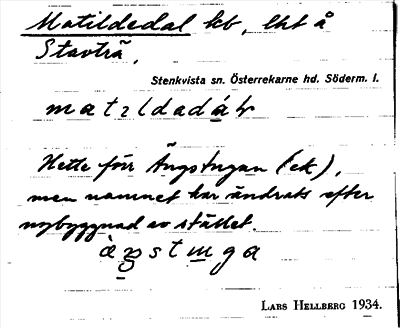 Matildedal kb, lht å
Stavträ,
Stenkvista sn. Österrekarne hd. Söderm. l.
matıldadál
Hette förr Ängstugan (ek),
men namnet har ändrats efter
nybyggnad av stället.
àŋstuga
LARS HELLBERG 1934.